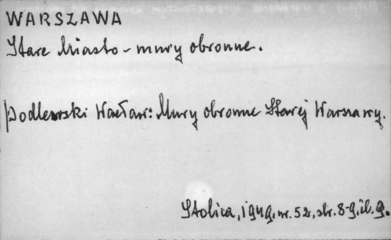 WARSZAWA
Stare Miasto - mury obronne.
Podlewski Wacław: Mury obronne Starej Warszawy.
Stolica, 1949, nr. 52, str. 8-9, il. 9.